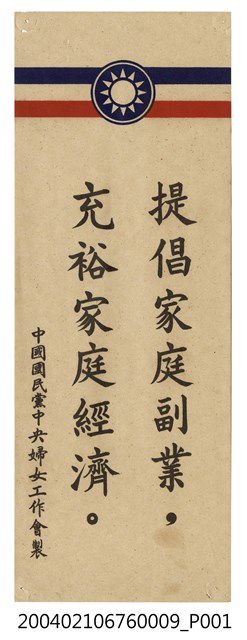 提倡家庭副業，
充裕家庭經濟。
中國國民黨中央婦女工作會製
200402106760009_P001